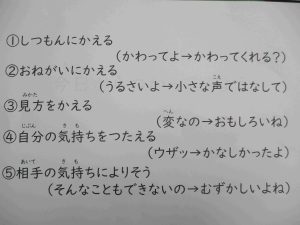 ①しつもんにかえる
(かわってよ→かわってくれる?)
②おねがいにかえる
(うるさいよ→小さな声ではなして)
③見方をかえる
(変なの→おもしろいね)
④自分の気持ちをつたえる
(ウザッ→かなしかったよ)
⑤相手の気持ちによりそう
(そんなこともできないの→むずかしいよね)